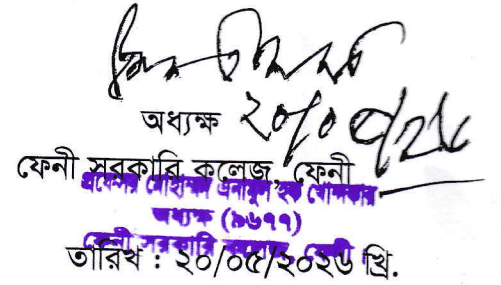 অধ্যক্ষ ২০/০৫/২৬
ফেনী সরকারি কলেজ, ফেনী
প্রফেসর মোহাম্মদ এনামুল হক খোন্দকার
অধ্যক্ষ (৯৬৭৭)
ফেনী সরকারি কলেজ, ফেনী
তারিখ : ২০/০৫/২০২৬ খ্রি.